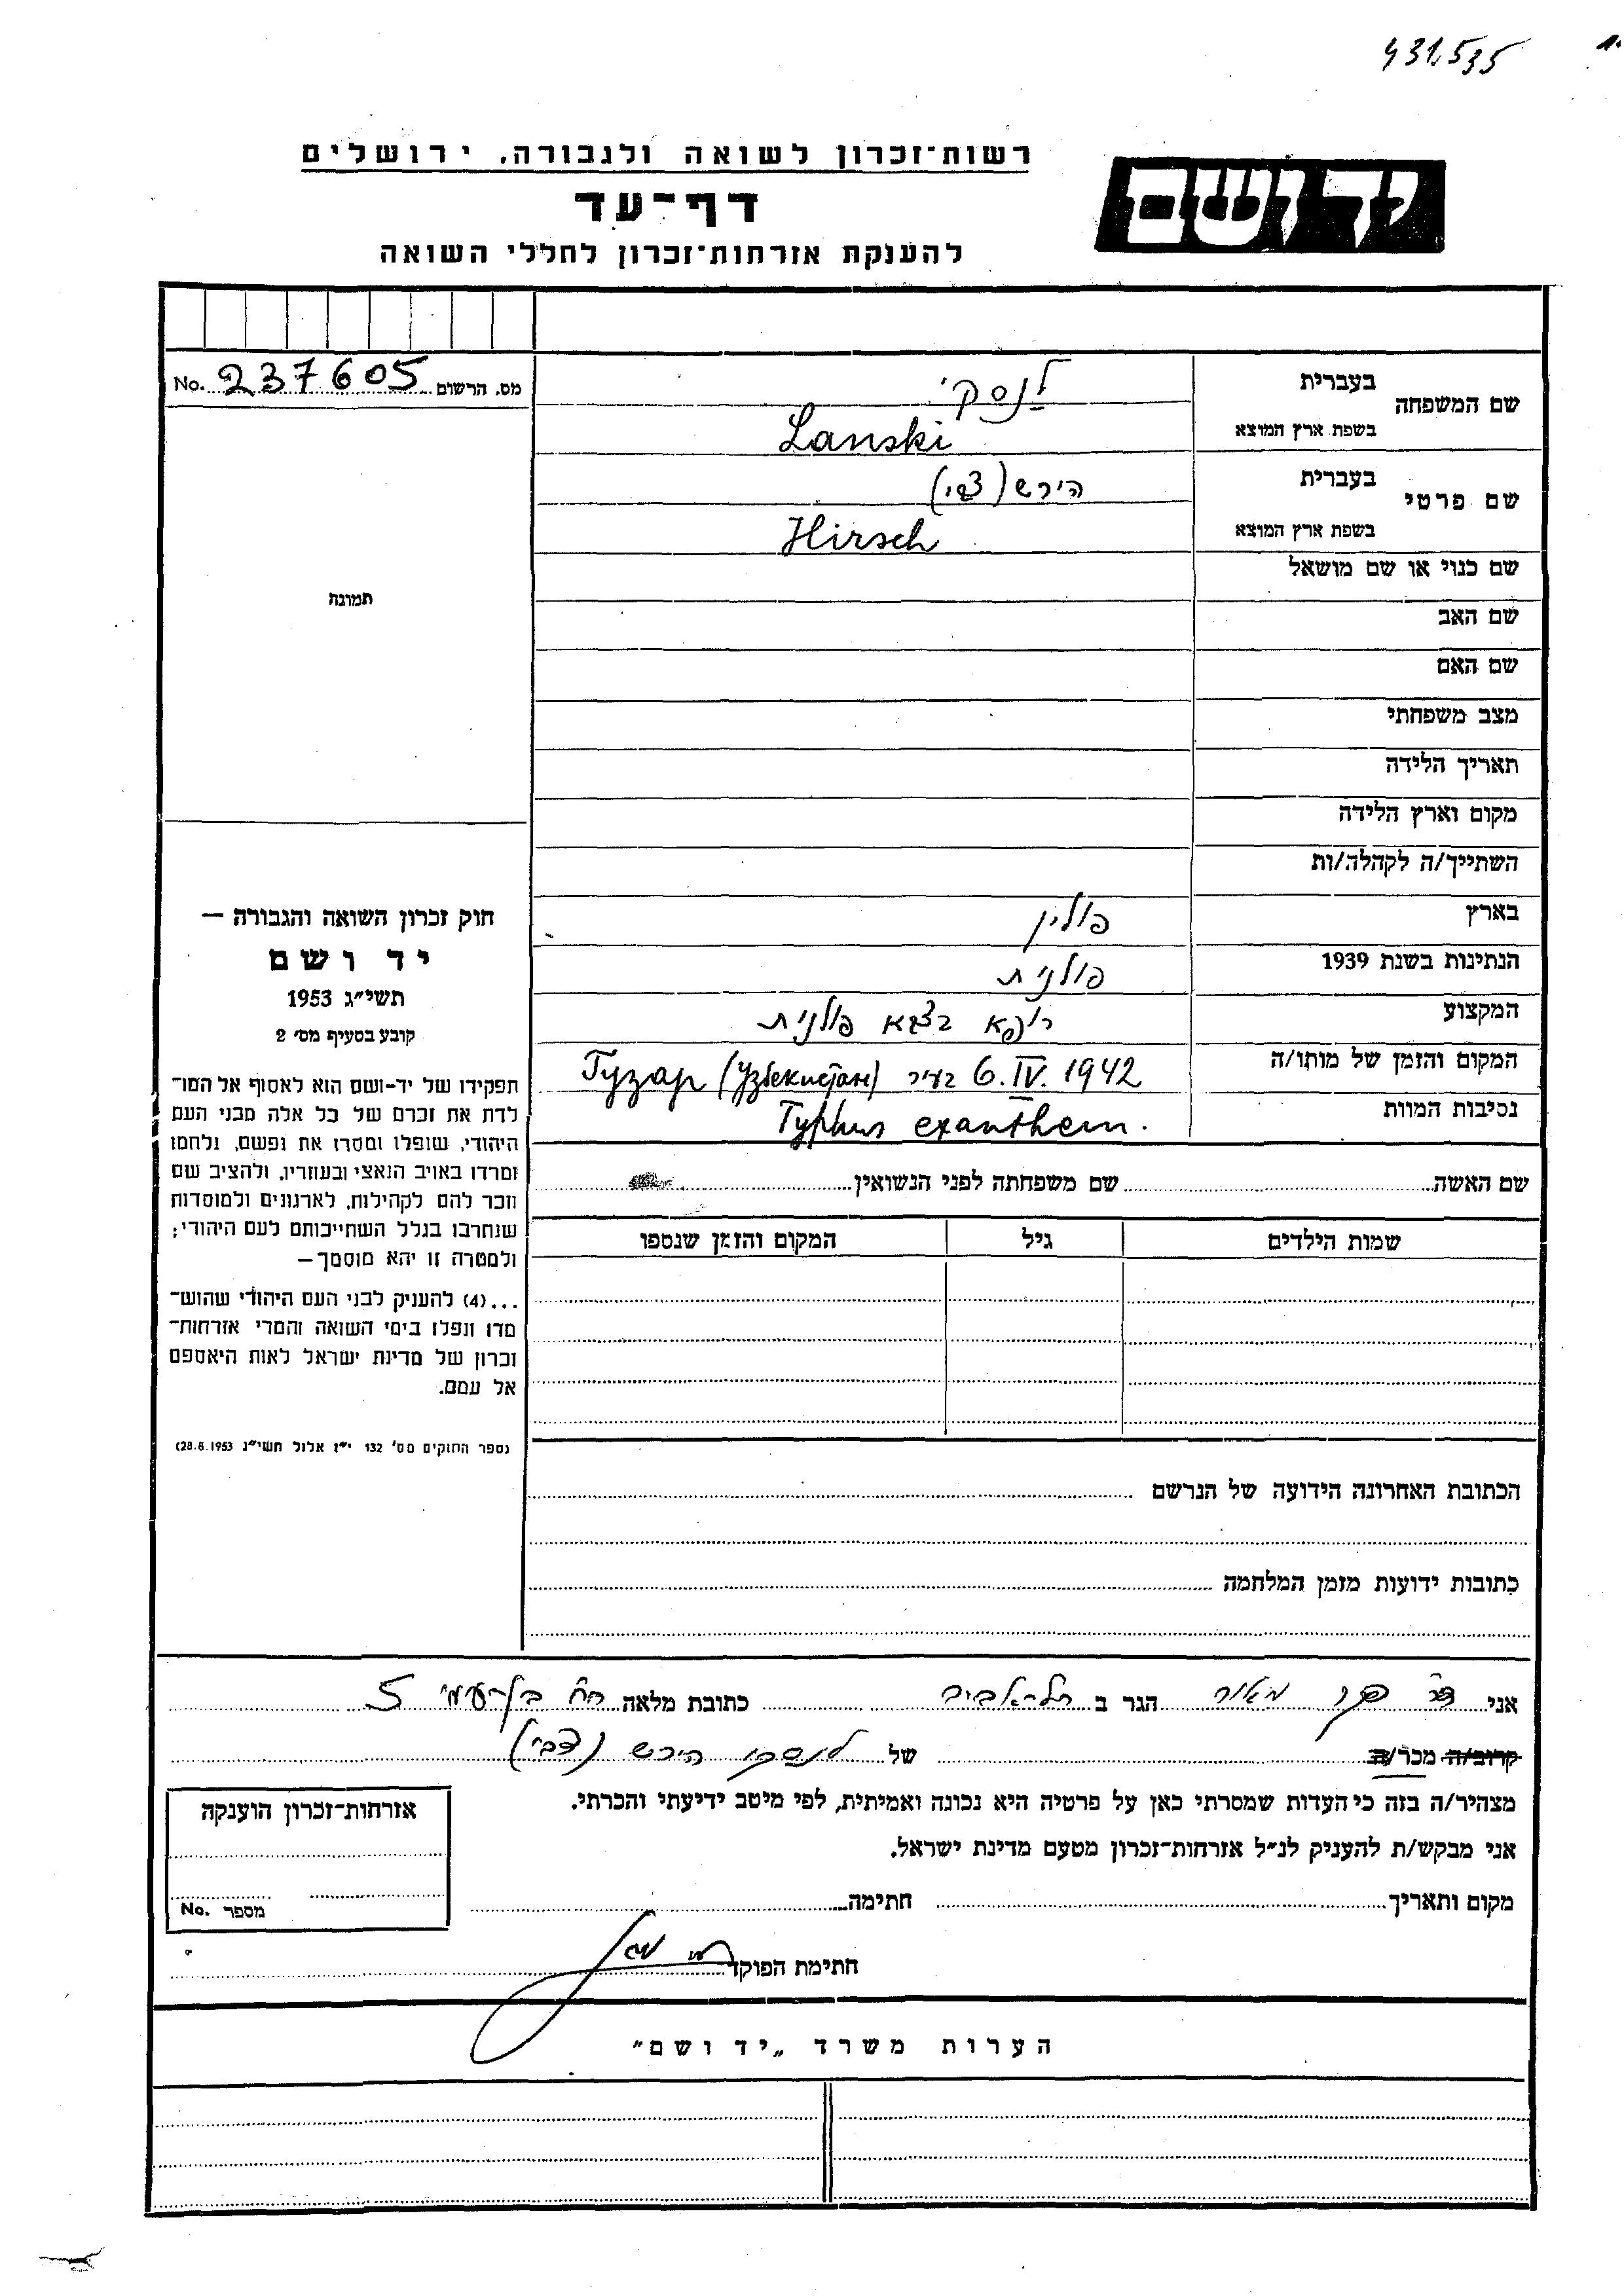 431535
רשות־זכרון לשואה ולגבורה, ירושלים
יד ושם
דף־עד
להענקת אזרחות־זכרון לחללי השואה
No. 237605 מס. הרשום
שם המשפחה
בעברית לנסקי
בשפת ארץ המוצא Lanski
שם פרטי
בעברית הירש (צבי)
בשפת ארץ המוצא Hirsch
שם כנוי או שם מושאל
שם האב
שם האם
מצב משפחתי
תאריך הלידה
מקום וארץ הלידה
השתייך/ה לקהלה/ות
בארץ פולין
הנתינות בשנת 1939 פולנית
המקצוע רופא בצבא פולנית
המקום והזמן של מותו/ה 6.IV.1942 בעיר Гузар (Узбекистан)
נסיבות המוות Typhus exanthem.
תמונה
חוק זכרון השואה והגבורה —
יד ושם
תשי״ג 1953
קובע בסעיף מס׳ 2
תפקידו של יד-ושם הוא לאסוף אל המו־
לדת את זכרם של כל אלה מבני העם
היהודי, שנפלו ומסרו את נפשם, נלחמו
ומרדו באויב הנאצי ובעוזריו, ולהציב שם
וזכר להם לקהילות, לארגונים ולמוסדות
שנחרבו בגלל השתייכותם לעם היהודי;
ולמטרה זו יהא מוסמך —
...(4) להעניק לבני העם היהודי שהוש־
מדו ונפלו בימי השואה והמרי אזרחות־
זכרון של מדינת ישראל לאות היאספם
אל עמם.
(ספר החוקים מס׳ 132 י״ז אלול תשי״ג 28.8.1953)
שם האשה שם משפחתה לפני הנשואין
שמות הילדים גיל המקום והזמן שנספו
הכתובת האחרונה הידועה של הנרשם
כתובות ידועות מזמן המלחמה
אני ד״ר מאור הגר ב תל־אביב כתובת מלאה רח׳ בן־עמי 5
קרוב/ה מכר/ה של לנסקי הירש (צבי)
מצהיר/ה בזה כי העדות שמסרתי כאן על פרטיה היא נכונה ואמיתית, לפי מיטב ידיעתי והכרתי.
אני מבקש/ת להעניק לנ״ל אזרחות־זכרון מטעם מדינת ישראל.
מקום ותאריך חתימה
חתימת הפוקד
אזרחות־זכרון הוענקה
No. מספר
הערות משרד „יד ושם״